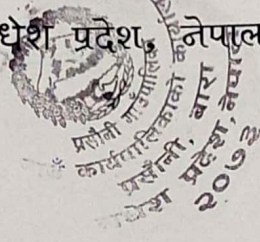 धेश प्रदेश, नेपाल
प्रसौनी गाउँपालिका
कार्यपालिकाको कार्यालय
प्रसौनी, बारा
मधेश प्रदेश, नेपाल
२०७३